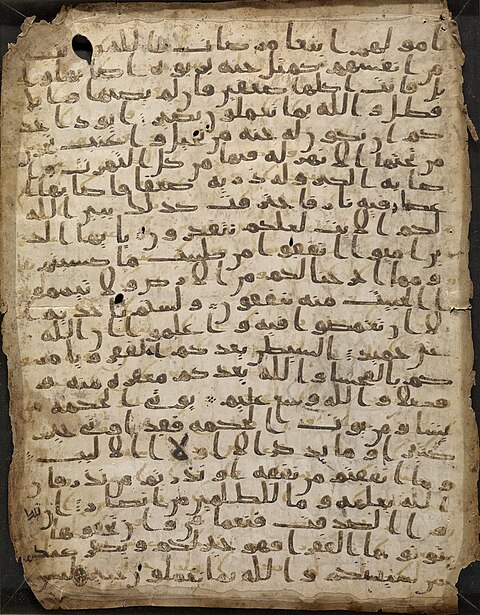 امولهم ابتغا مرضات الله وتثبيتا
من انفسهم كمثل جنة بربوة اصابها وا
بل فاتت اكلها ضعفين فان لم يصبها وابل
فطل والله بما تعملون بصير ايود احد
كم ان تكون له جنة من نخيل واعنب تجري
من تحتها الانهر له فيها من كل الثمرت وا
صابه الكبر وله ذرية ضعفا فاصابها ا
عصار فيه نار فاحترقت كذلك يبين الله
لكم الايت لعلكم تتفكرون يايها الذ
ين امنوا انفقوا من طيبت ما كسبتم
ومما اخرجنا لكم من الارض ولا تيممو
ا الخبيث منه تنفقون ولستم باخذيه
الا ان تغمضوا فيه واعلموا ان الله
غني حميد الشيطن يعدكم الفقر ويامر
كم بالفحشا والله يعدكم مغفرة منه و
فضلا والله وسع عليم يوتي الحكمة من
يشا ومن يوت الحكمة فقد اوتي خير
كثيرا وما يذكر الا اولوا الالبب
وما انفقتم من نفقة او نذرتم من نذر فان
الله يعلمه وما للظلمين من انصار ان تبد
وا الصدقت فنعما هي وان تخفوها و
توتوها الفقرا فهو خير لكم ويكفر عنكم
من سيتكم والله بما تعملون خبير ليس